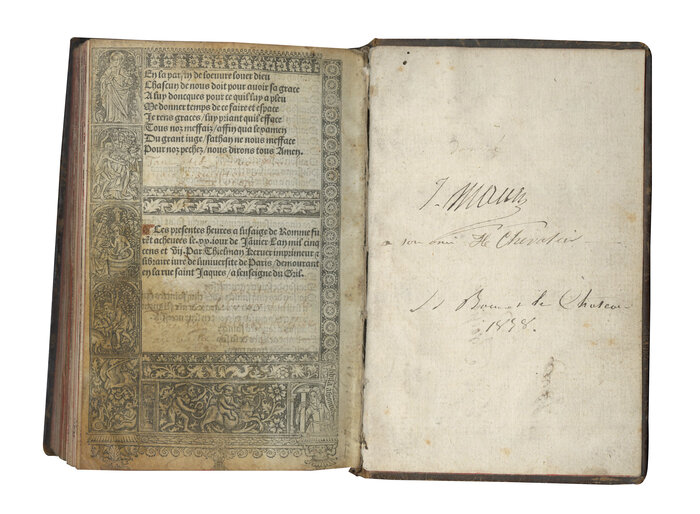 En la par fin de loeuvre louer dieu
Chascun de nous doit pour auoir sa grace
A luy doncques pour ce quil luy a pleu
Me donner temps de ce faire et espace
Je rens graces / luy priant quil efface
Tous noz meffaiz / affin qua le yamen
Du grant iuge / sathan ne nous mefface
Pour noz pechez / nous dirons tous Amen.
Ces presentes heures a lusaige de Romme fu
rēt acheuees le.xx.iour de Januier Lan mil cinq
cens et vii. Par Thielman keruer imprimeur a
libraire iure de luniuersite de Paris / demourant
en la rue saint Jaques / a lenseigne du Gril.
J. Maury
a son ami
Chevalier
St Bonnet de
1838.